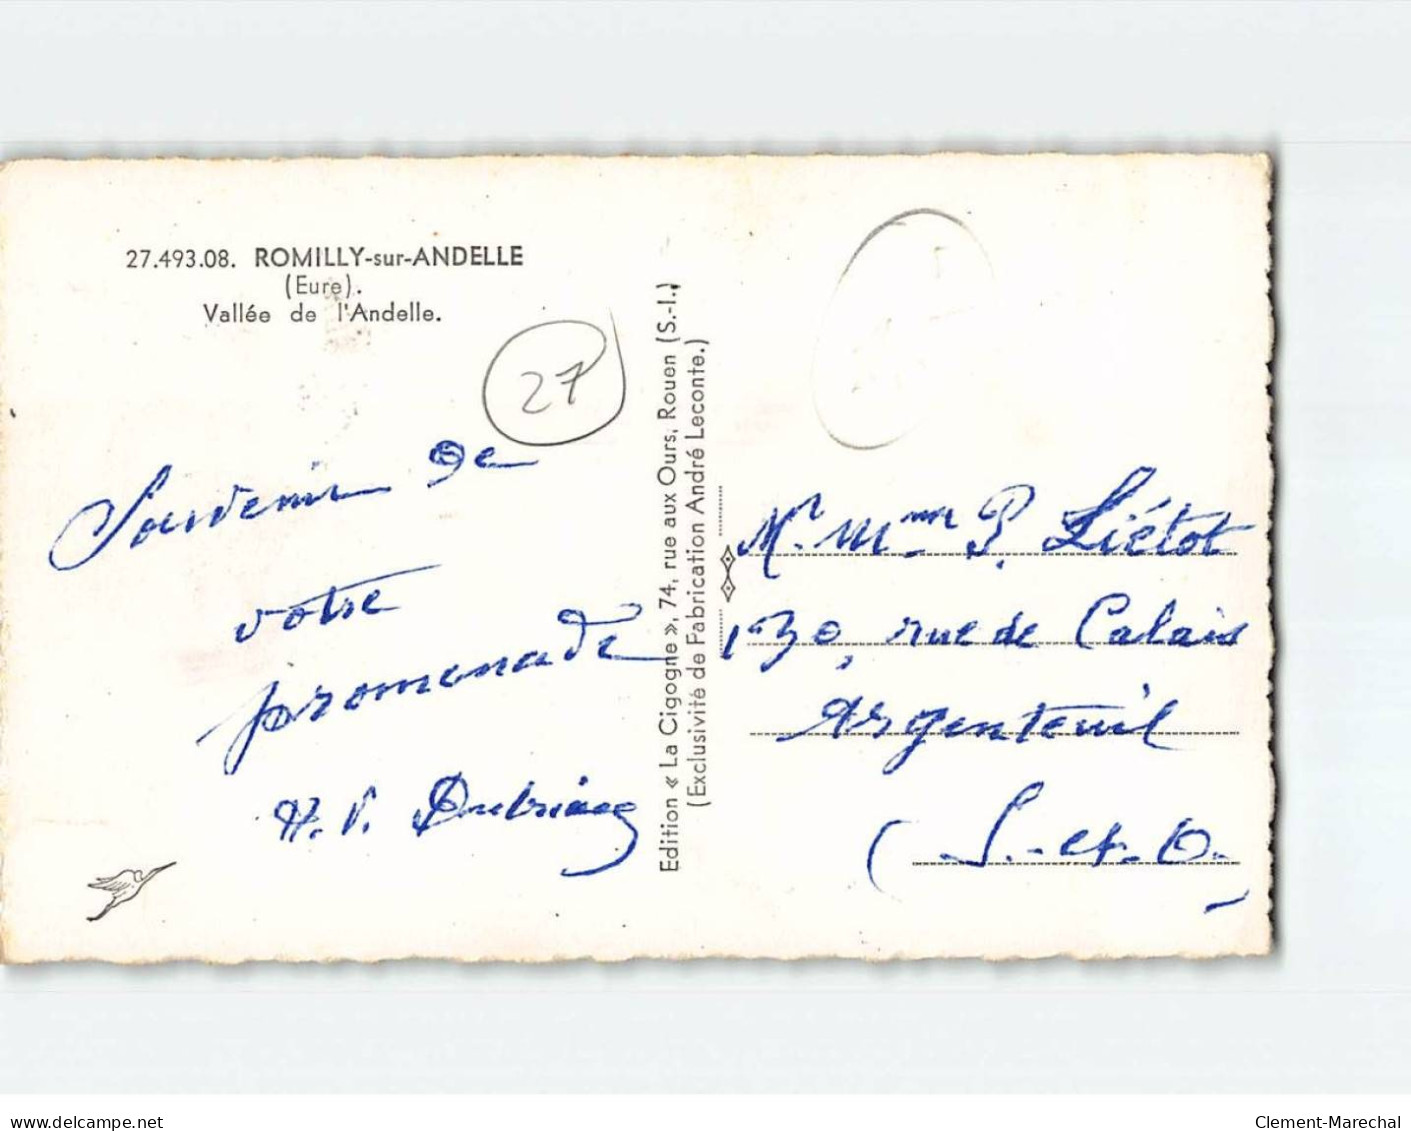 27.493.08. ROMILLY-sur-ANDELLE
(Eure).
Vallée de l'Andelle.
27
Souvenir de
votre
promenade
Edition « La Cigogne », 74, rue aux Ours, Rouen (S.-I.)
(Exclusivité de Fabrication André Leconte.)
Mr. Mme P. Liétot
130, rue de Calais
Argenteuil
(S.-et-O.
delcampe.net
Clement-Marechal